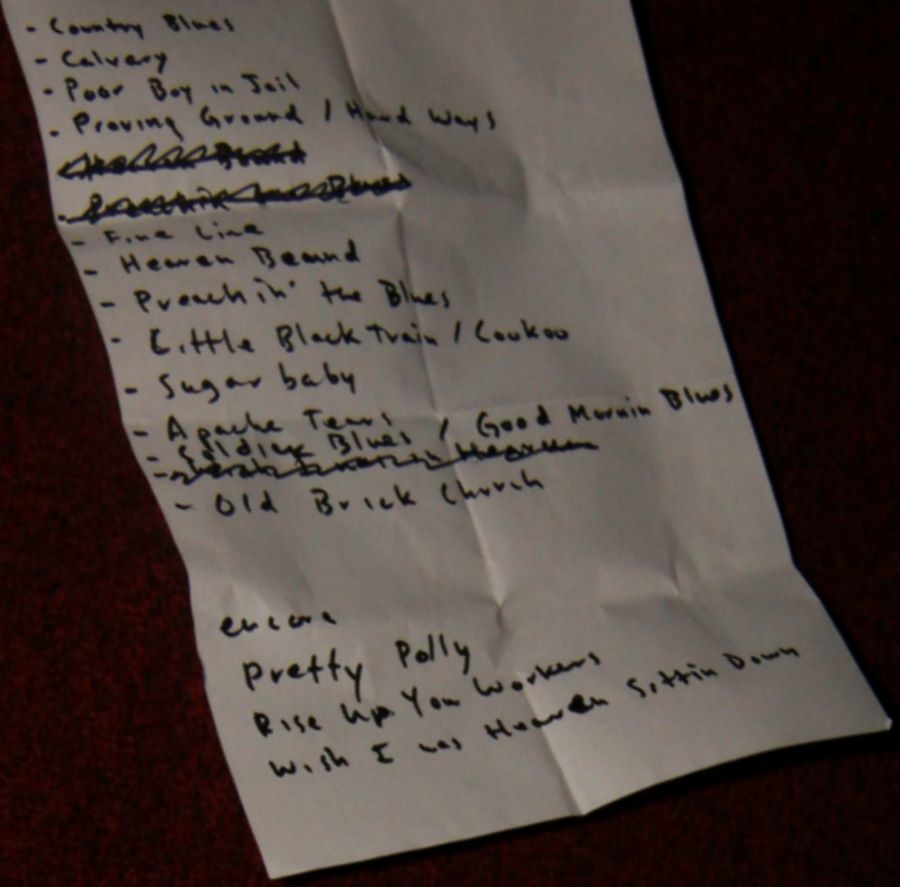 - Country Blues
- Calvary
- Poor Boy in Jail
- Proving Ground / Hard Ways
- Fine Line
- Heaven Beound
- Preachin' the Blues
- Little Black Train / Cookoo
- Sugar baby
- Apache Tears
- Soldier Blues / Good Mornin Blues
- Old Brick Church
encore
Pretty Polly
Rise Up You Workers
Wish I was Heaven Sittin Down